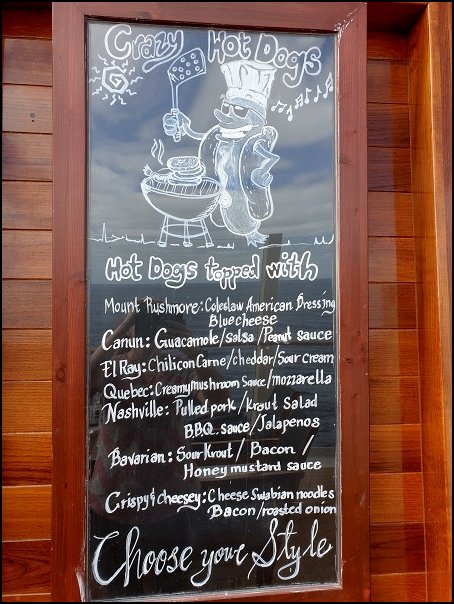 Crazy Hot Dogs
Hot Dogs topped with
Mount Rushmore: Coleslaw American Dressing
Bluecheese
Canun: Guacamole/salsa/Peanut sauce
El Ray: Chilicon Carne/cheddar/Sour cream
Quebec: Creamymushroom Sauce/mozzarella
Nashville: Pulled pork/Kraut Salad
B.B.Q. sauce/Jalapenos
Bavarian: Sour Krout/Bacon/
Honey mustard sauce
Crispy & cheesey: Cheese Swabian noodles
Bacon/roasted onion
Choose your Style